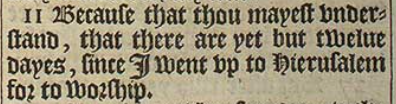 11 Because that thou mayest vnder-
stand, that there are yet but twelue
dayes, since I went vp to Hierusalem
for to worship.